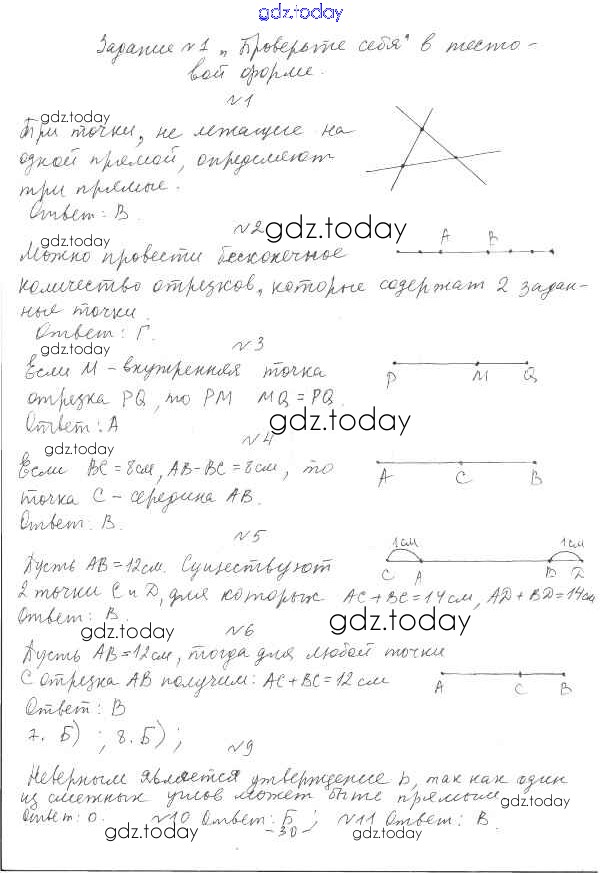 gdz.today
Задание №1 „Проверьте себя" в тесто-
вой форме.
№1
gdz.today
Три точки, не лежащие на
одной прямой, определяют
три прямые.
Ответ: В.
№2
gdz.today
gdz.today
A B
Можно провести бесконечное
количество отрезков, которые содержат 2 задан-
ные точки.
Ответ: Г.
gdz.today
№3
Если М - внутренняя точка
P M Q
отрезка PQ, то PM MQ = PQ.
Ответ: А
gdz.today
№4
gdz.today
Если BC = 8см, AB-BC = 8см, то
A C B
точка С - середина АВ.
Ответ: В.
№5
1см 1см
Пусть AB = 12см. Существуют
C A B D
2 точки С и D, для которых AC+BC=14см, AD+BD=14см
Ответ: В.
gdz.today
gdz.today
№6
Пусть AB=12см, тогда для любой точки
С отрезка АВ получим: AC+BC=12см
A C B
Ответ: В
gdz.today
7. Б) ; 8. Б) ;
№9
gdz.today
Неверным является утверждение b, так как один
из смежных углов может быть прямым.
Ответ: 0. №10 Ответ: Б ; №11 Ответ: В.
-30-
gdz.today
gdz.today